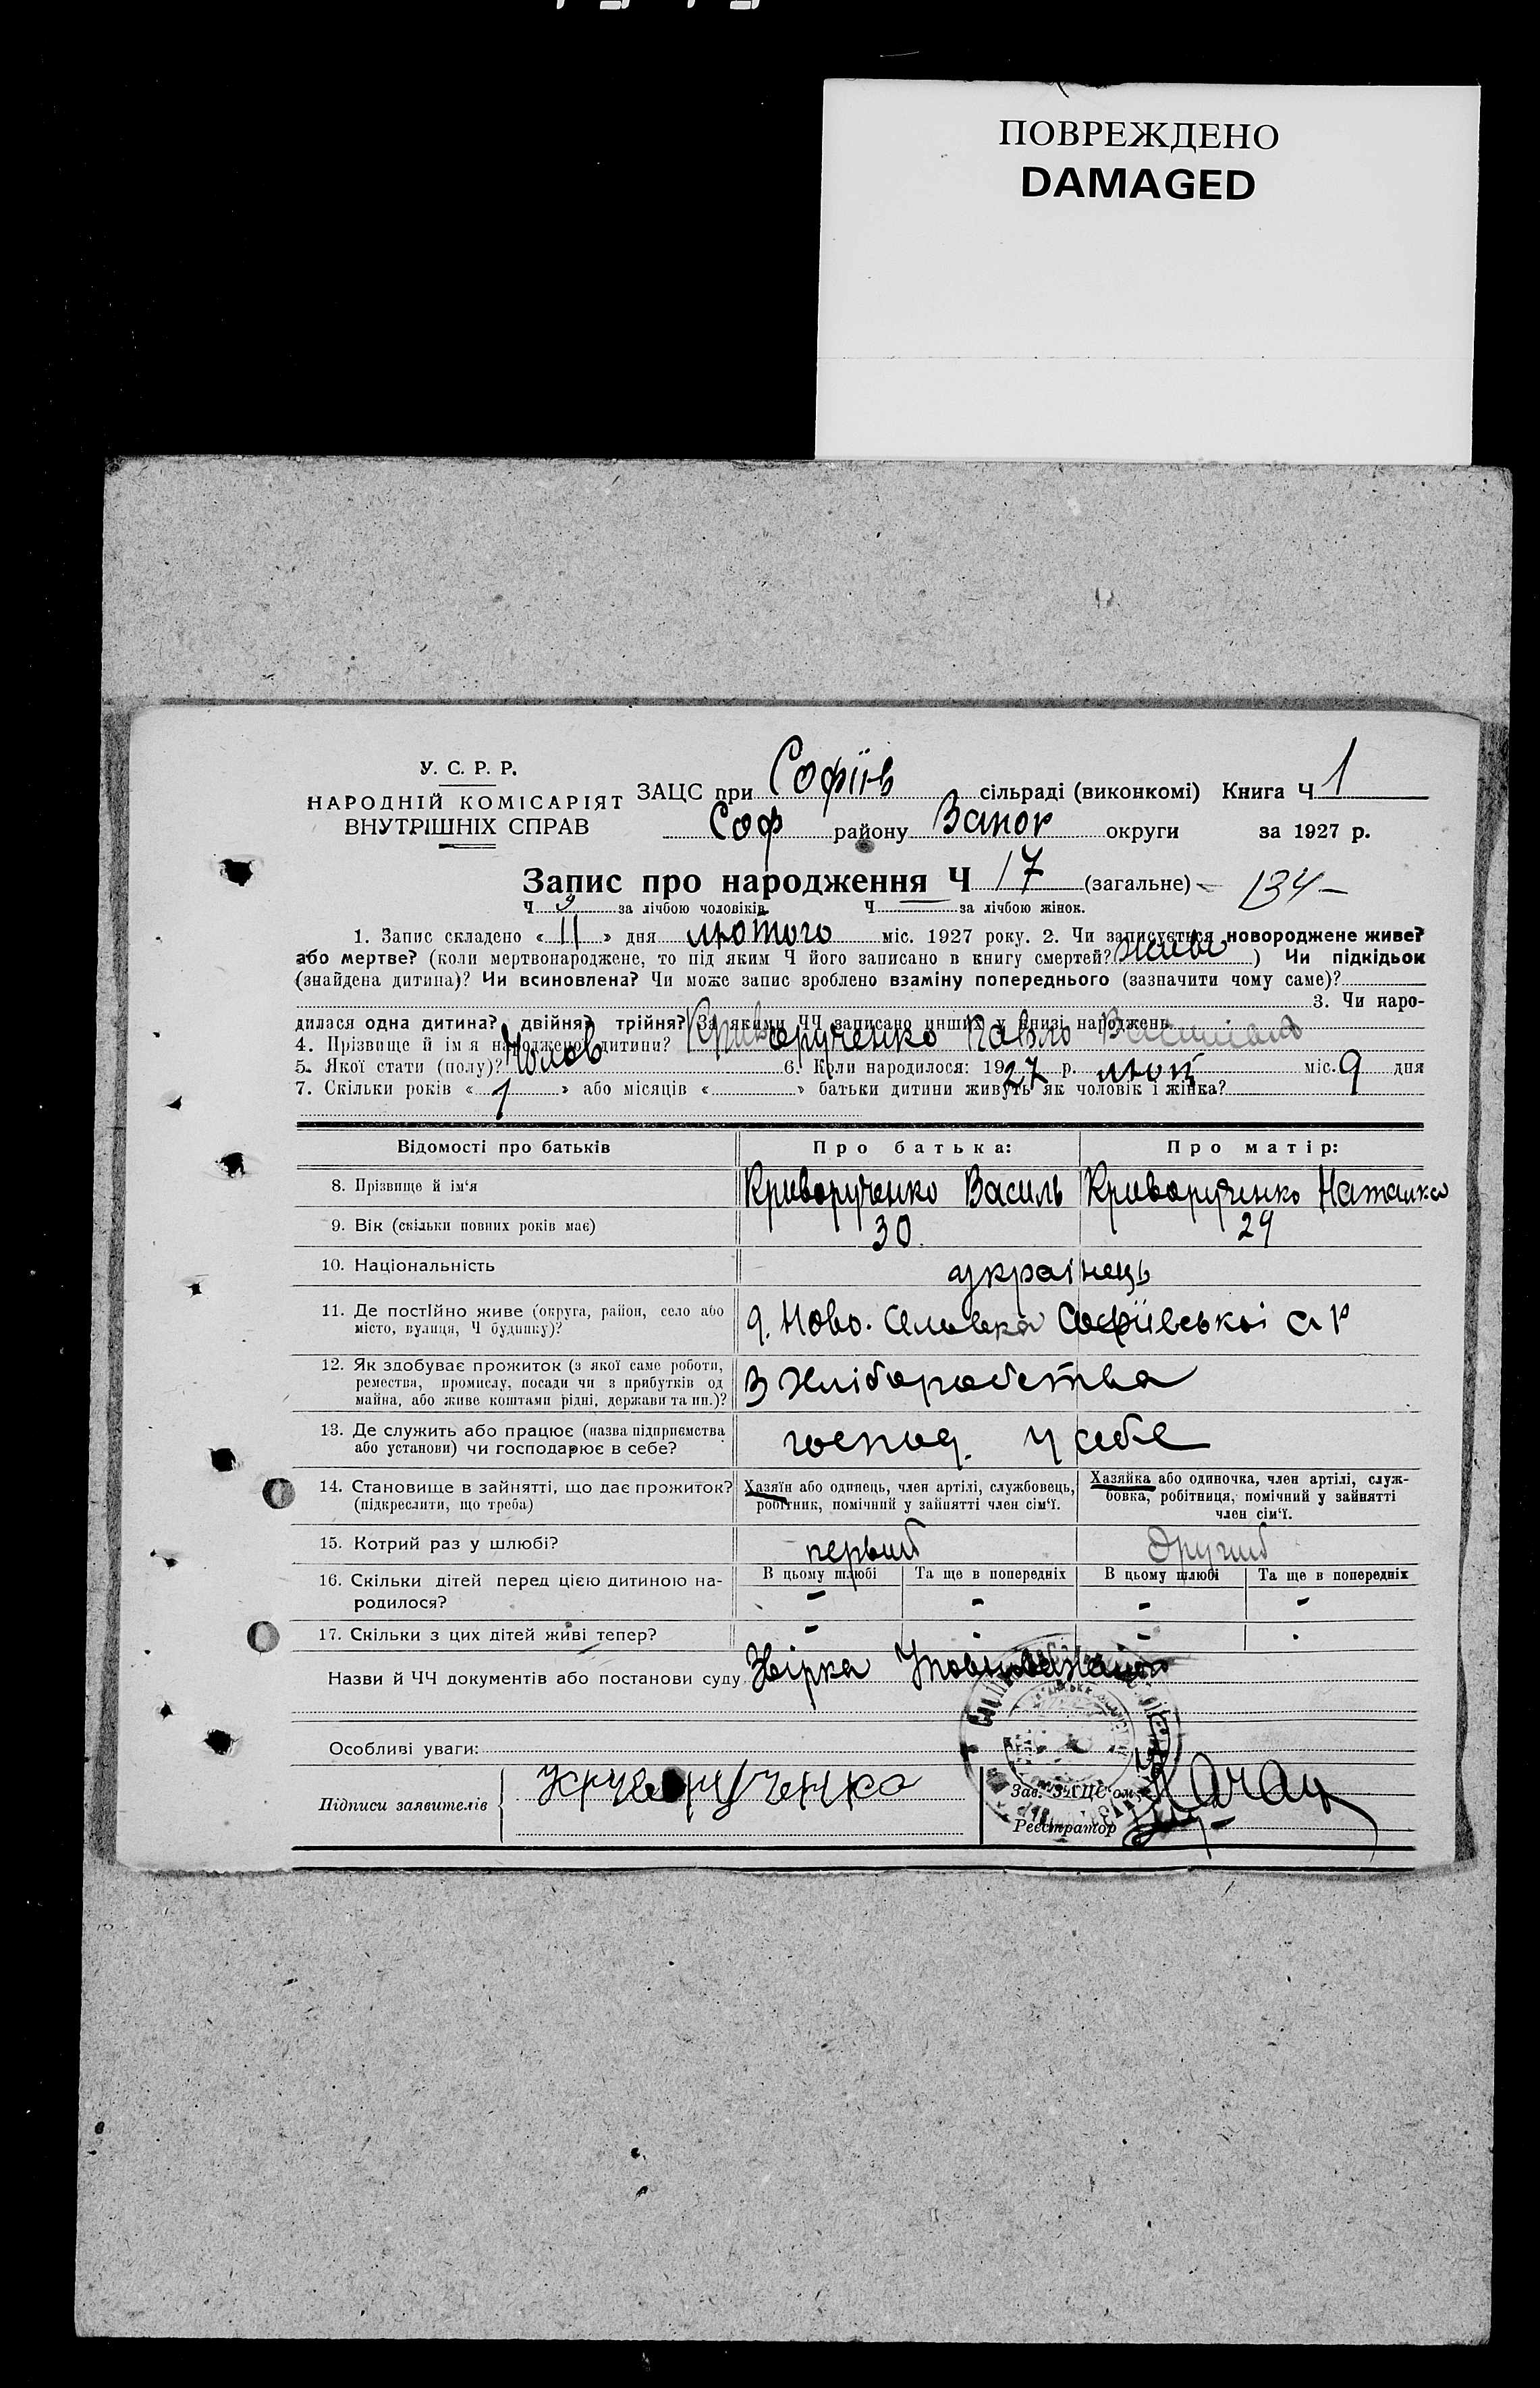 ПОВРЕЖДЕНО
DAMAGED
У. С. Р. Р.
НАРОДНІЙ КОМІСАРІЯТ
ВНУТРІШНІХ СПРАВ
ЗАЦС при Софіїв сільраді (виконкомі) Книга Ч 1
Соф району Запор округи за 1927 р.
Запис про народження Ч 17 (загальне) – 134 –
Ч 9 за лічбою чоловіків. Ч за лічбою жінок.
1. Запис складено « 11 » дня лютого міс. 1927 року. 2. Чи записується новороджене живе?
або мертве? (коли мертвонароджене, то під яким Ч його записано в книгу смертей? живе ) Чи підкідьок
(знайдена дитина)? Чи всиновлена? Чи може запис зроблено взаміну попереднього (зазначити чому саме)?
3. Чи наро-
дилася одна дитина? двійня? трійня? За якими ЧЧ записано инших у книзі народжень
4. Прізвище й ім'я народженої дитини? Криворученко Павло
5. Якої стати (полу)? Чолов 6. Коли народилося: 1927 р. лют міс. 9 дня
7. Скільки років « 1 » або місяців « » батьки дитини живуть як чоловік і жінка?
Відомості про батьків Про батька: Про матір:
8. Прізвище й ім'я Криворученко Василь Криворученко Наталка
9. Вік (скільки повних років має) 30. 29
10. Національність українець
11. Де постійно живе (округа, район, село або
місто, вулиця, Ч будинку)? Софіївської с Р
12. Як здобуває прожиток (з якої саме роботи,
ремества, промислу, посади чи з прибутків од
майна, або живе коштами рідні, держави та ин.)? З Хліборобства
13. Де служить або працює (назва підприємства
або установи) чи господарює в себе? господ. у себе
14. Становище в зайнятті, що дає прожиток?
(підкреслити, що треба)
Хазяїн або одинець, член артілі, службовець,
робітник, помічний у зайнятті член сім'ї.
Хазяйка або одиночка, член артілі, служ-
бовка, робітниця, помічний у зайнятті
член сім'ї.
15. Котрий раз у шлюбі? первий другий
16. Скільки дітей перед цією дитиною на-
родилося?
В цьому шлюбі Та ще в попередніх В цьому шлюбі Та ще в попередніх
- - - -
17. Скільки з цих дітей живі тепер? - - - -
Назви й ЧЧ документів або постанови суду
Особливі уваги:
Підписи заявителів Криворученко
Зав. ЗАЦС'ом
Реєстратор